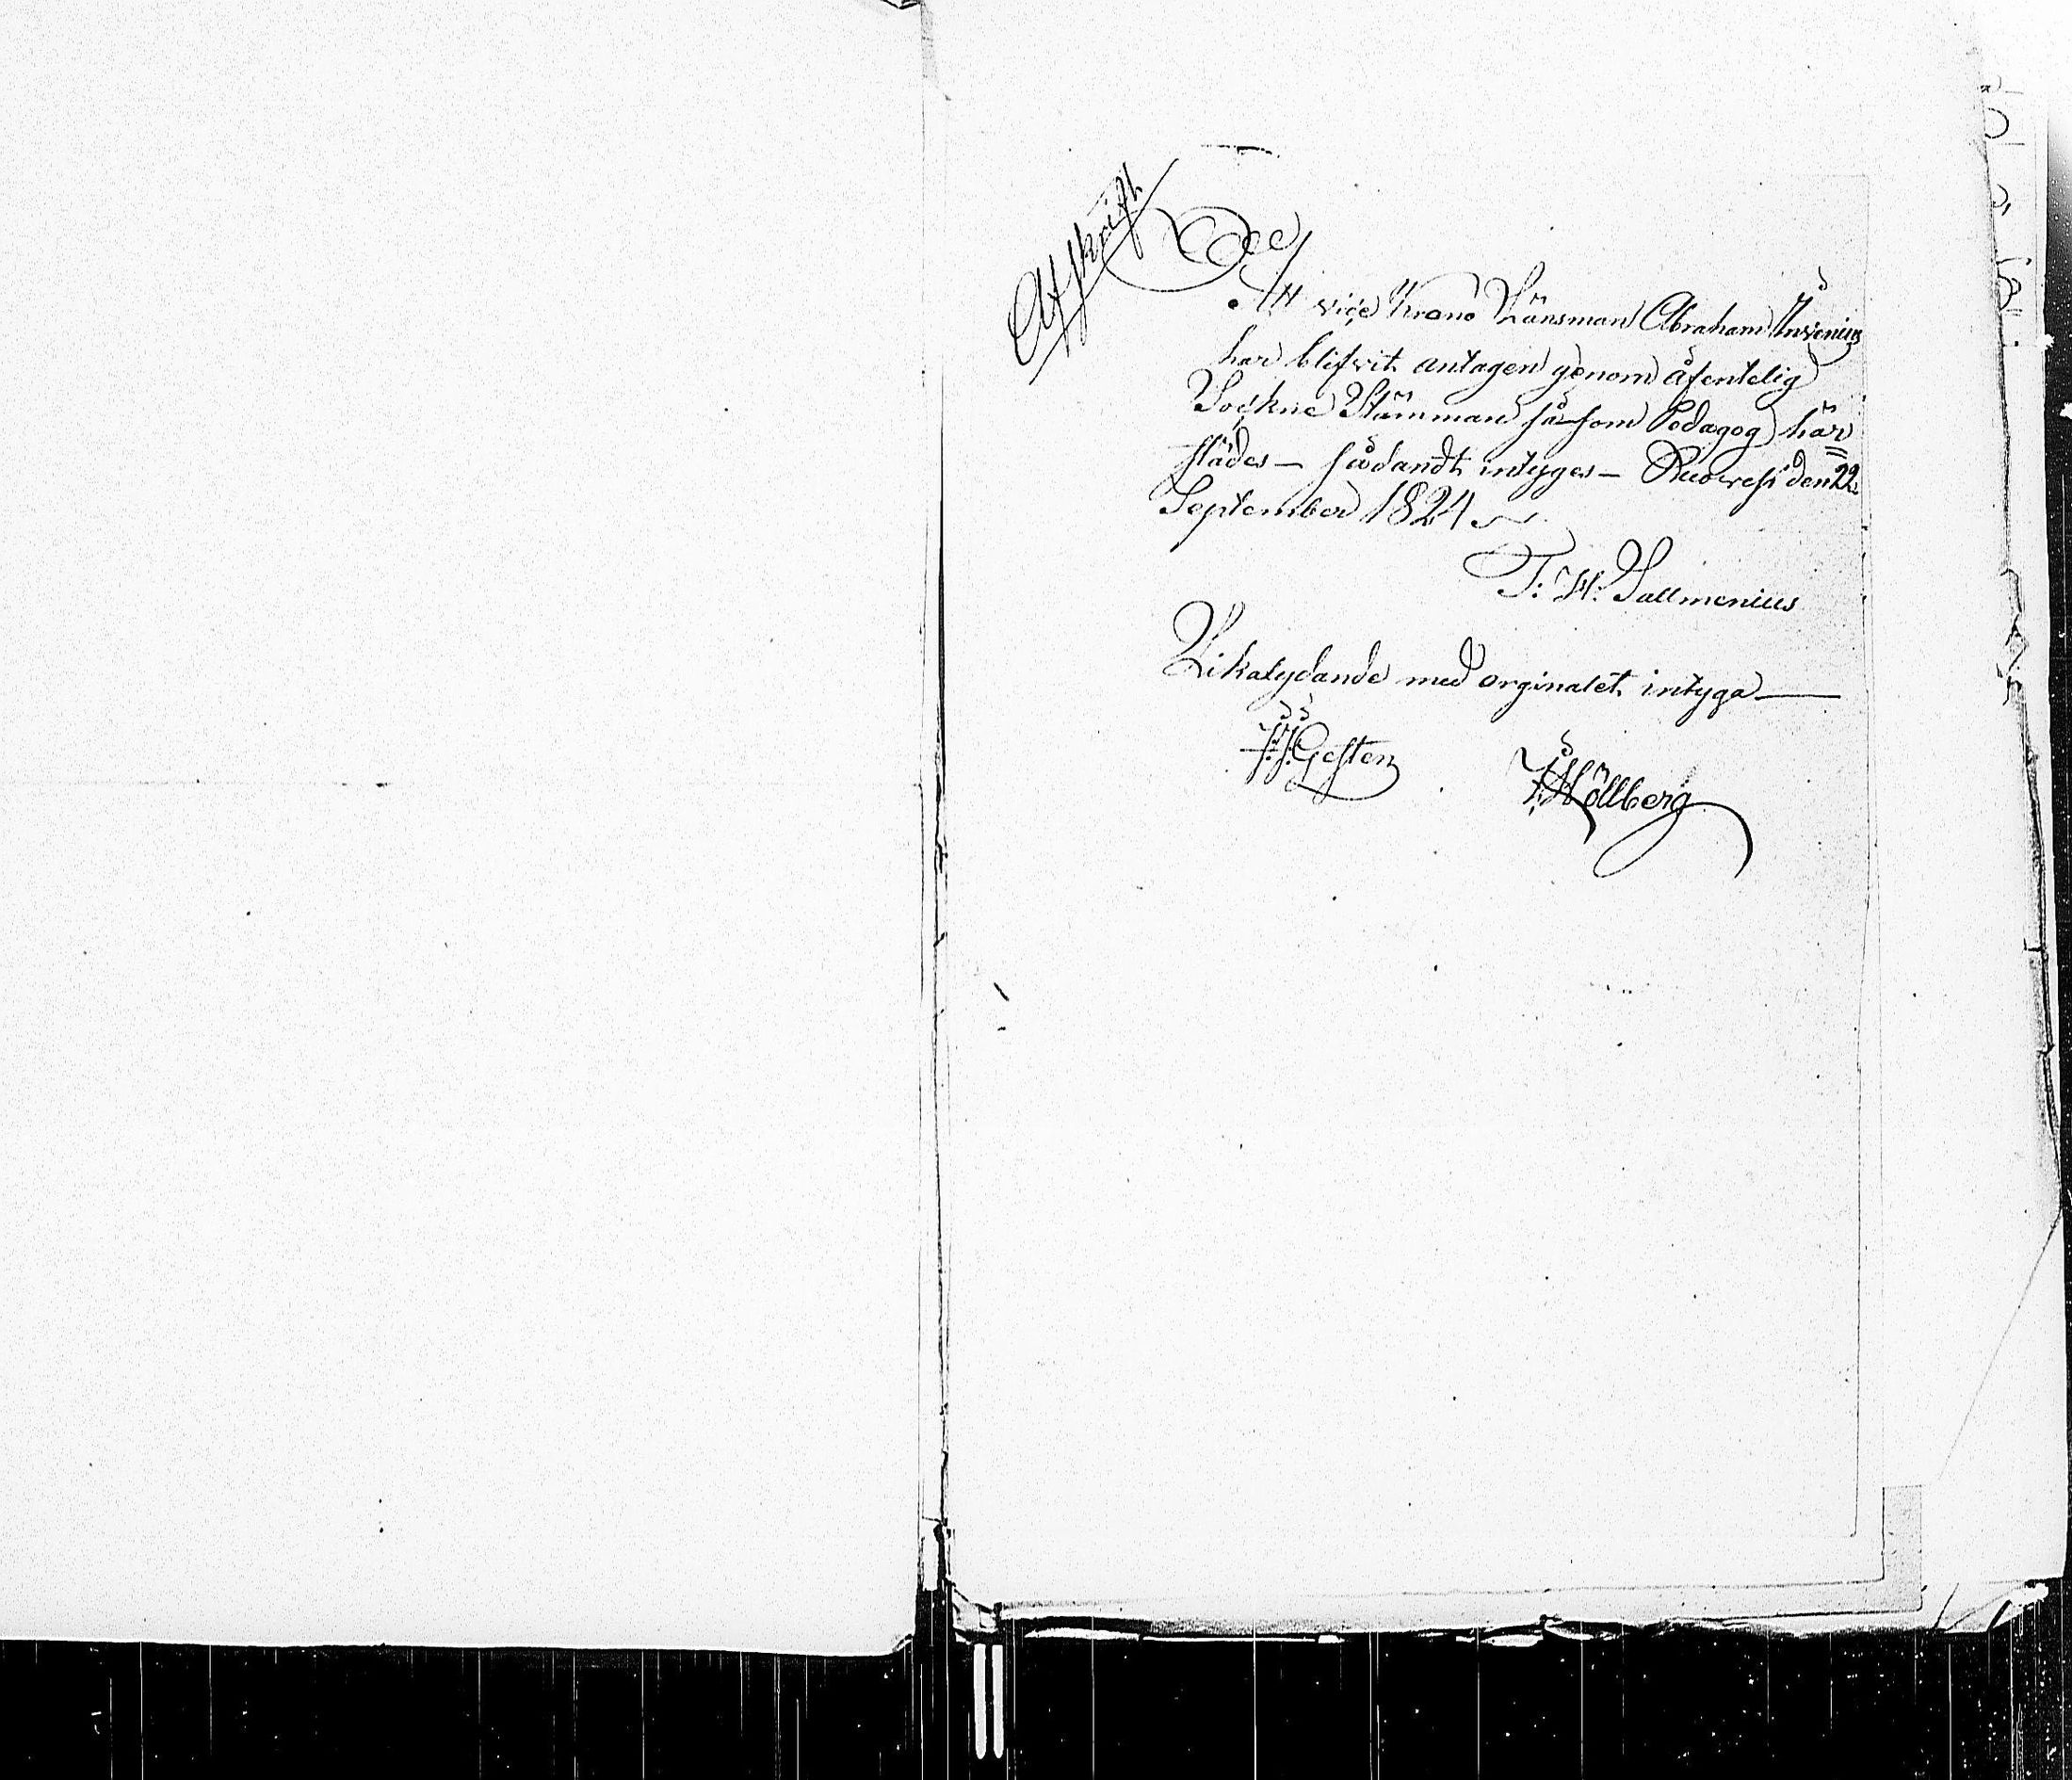 Afskrift
Att vice Krono Länsman Abraham Invenius
har blifvit antagen genom åfentelig
Sockne Stämman så som Pedagog här
städes — sådandt intyges — Ruovesi den 22
September 1824
T. W. Sallmenius
Likalydande med orginalet intyga —
J. J. Gesten
J. Höllberg